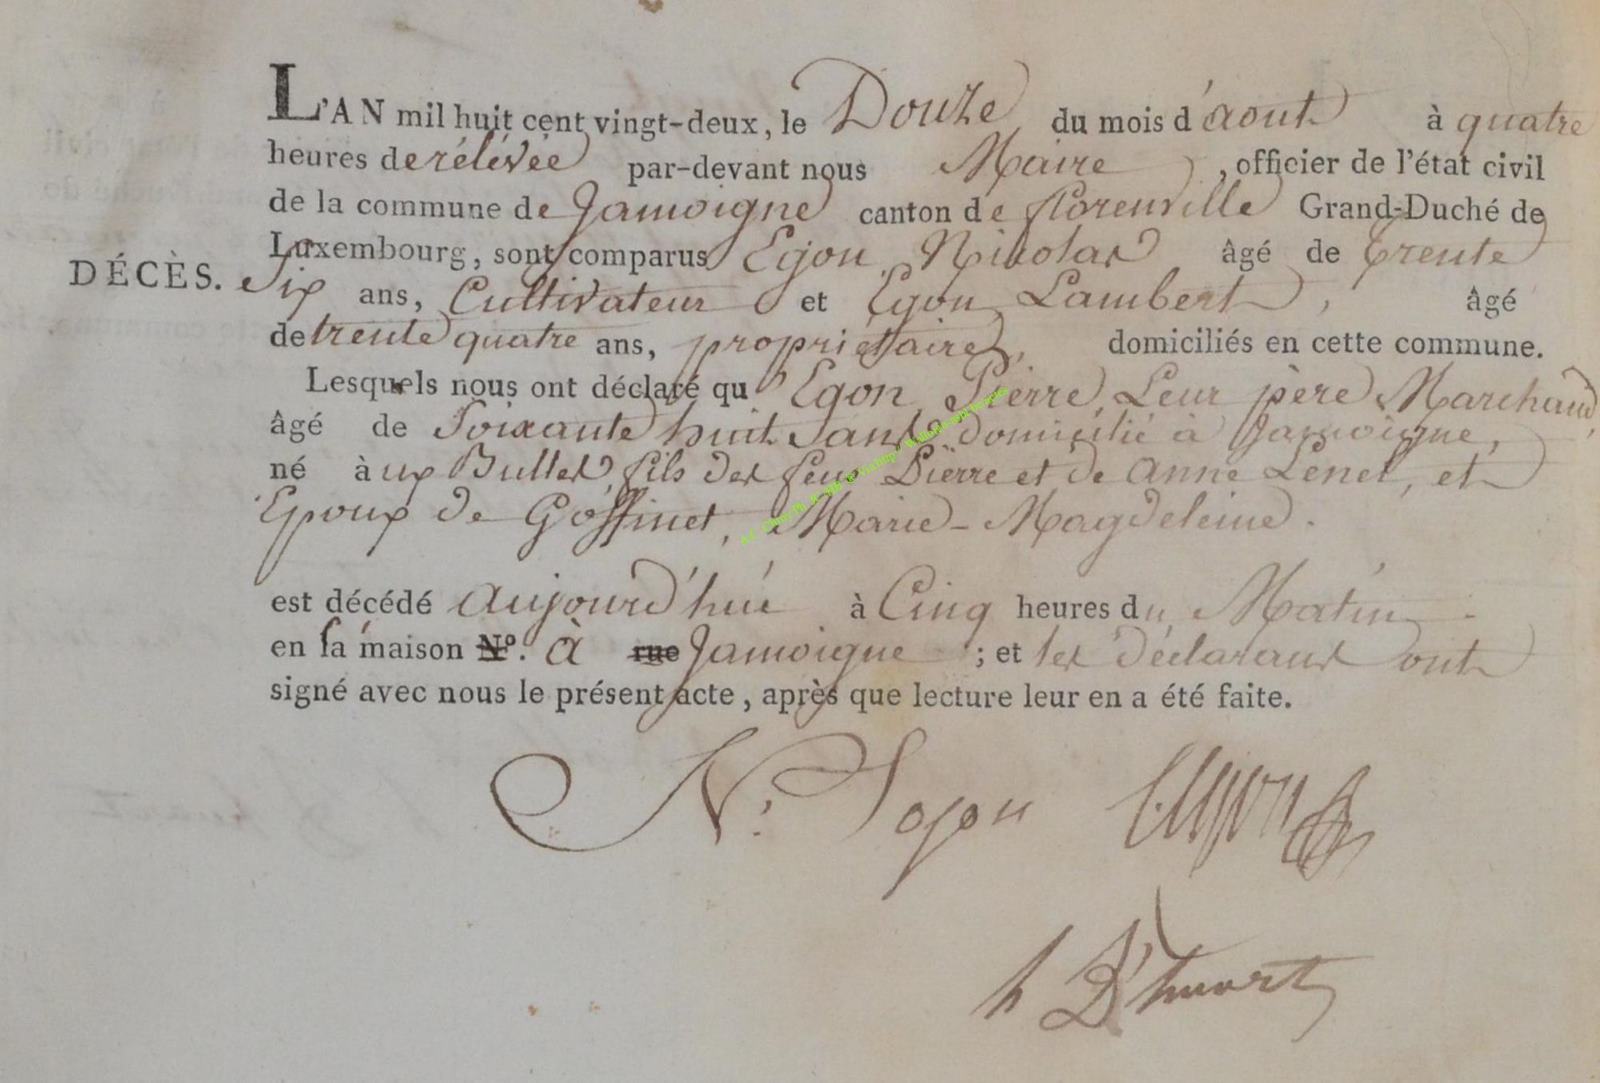 L'AN mil huit cent vingt-deux, le Douze du mois d'aout à quatre
heures de rélévée par-devant nous Maire, officier de l'état civil
de la commune de Jamoigne canton de florenville Grand-Duché de
Luxembourg, sont comparus Egon Nicolas âgé de trente
DÉCÈS. Six ans, Cultivateur et Egon Lambert, âgé
de trente quatre ans, propriétaire, domiciliés en cette commune.
Lesquels nous ont déclaré qu'Egon, Pierre, Leur père Marchand,
âgé de Soixante huit ans, domicilié à Jamoigne,
né à ux Bulles, fils des feu Pierre et de Anne Lenel, et
Epoux de Goffinet, Marie-Magdeleine.
est décédé aujourd'hui à Cinq heures du Matin
en sa maison N°. à rue Jamoigne ; et les déclarans ont
signé avec nous le présent acte, après que lecture leur en a été faite.
N: Egon
h D'huart